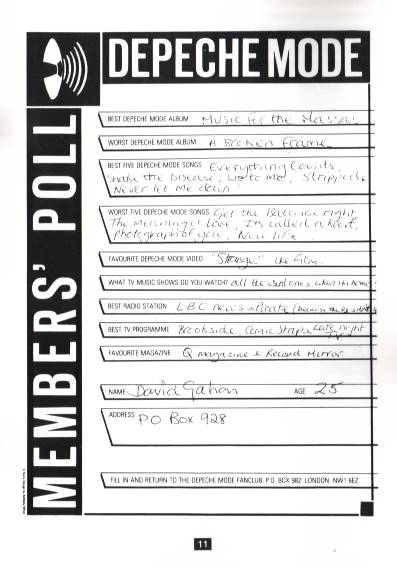 DEPECHE MODE
MEMBERS' POLL
BEST DEPECHE MODE ALBUM Music for the Masses
WORST DEPECHE MODE ALBUM A Broken Frame
BEST FIVE DEPECHE MODE SONGS Everything Counts,
Shake the Disease, Lie to Me, Stripped,
Never let me down!
WORST FIVE DEPECHE MODE SONGS Get the Balance right
The Meaning of Love, Its called a heart,
photograph of you, New life
FAVOURITE DEPECHE MODE VIDEO "Strange" the film.
WHAT TV MUSIC SHOWS DO YOU WATCH? all the usual ones, when im home
BEST RADIO STATION LBC news + Pirate (because the
BEST TV PROGRAMME Brookside, Comic Strip + Late night
TV
FAVOURITE MAGAZINE Q magazine & Record Mirror
NAME David Gahan AGE 25
ADDRESS PO Box 928
FILL IN AND RETURN TO THE DEPECHE MODE FANCLUB, P.O. BOX 982. LONDON, NW1 6EZ
11